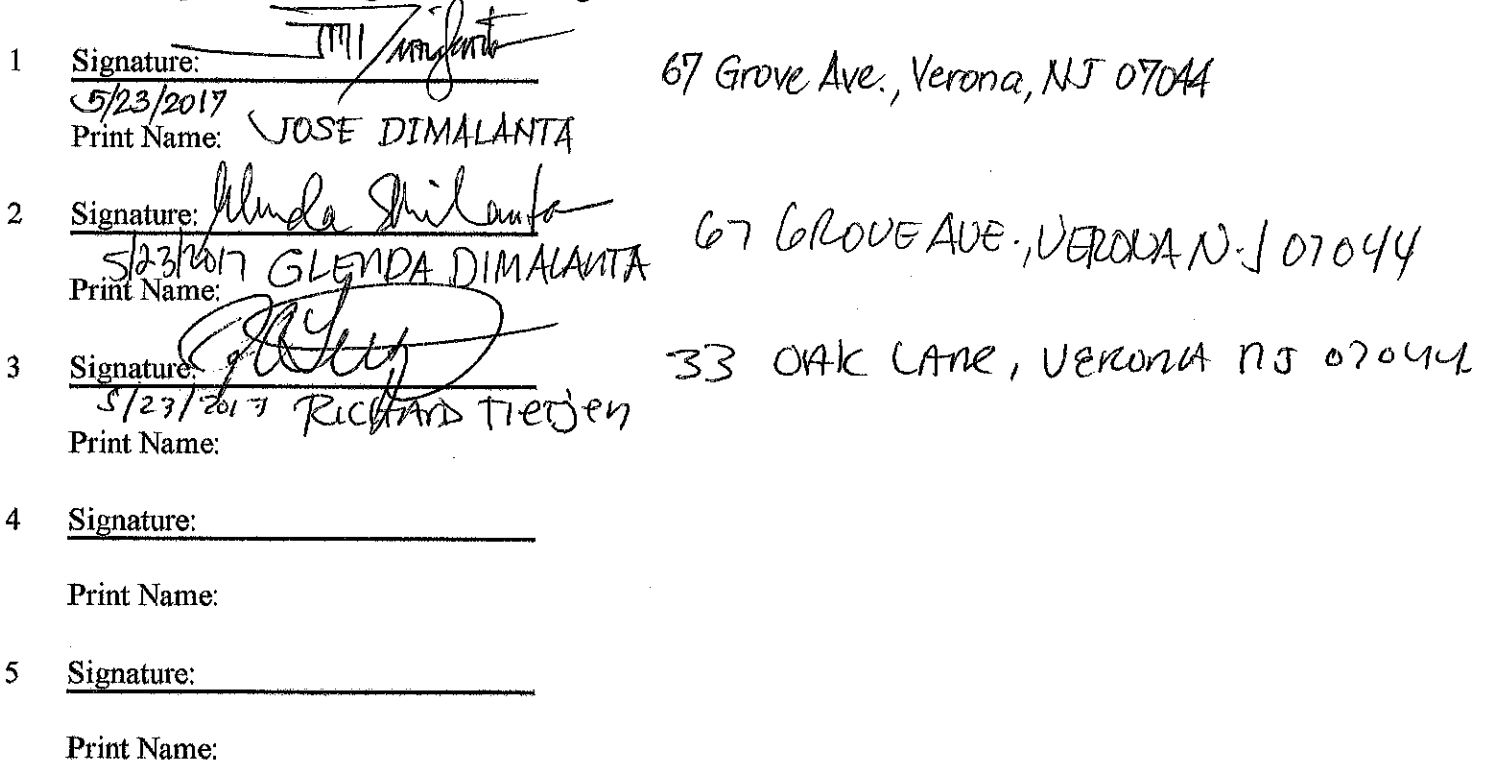 1 Signature: 67 Grove Ave., Verona, NJ 07044
5/23/2017
Print Name: JOSE DIMALANTA
2 Signature: Glenda Dimalanta 67 GROVE AVE., VERONA N.J 07044
5/23/2017 GLENDA DIMALANTA
Print Name:
3 Signature: 33 OAK LAne, VERONA nJ 07044
5/23/2017 RICHARD TIetjen
Print Name:
4 Signature:
Print Name:
5 Signature:
Print Name: